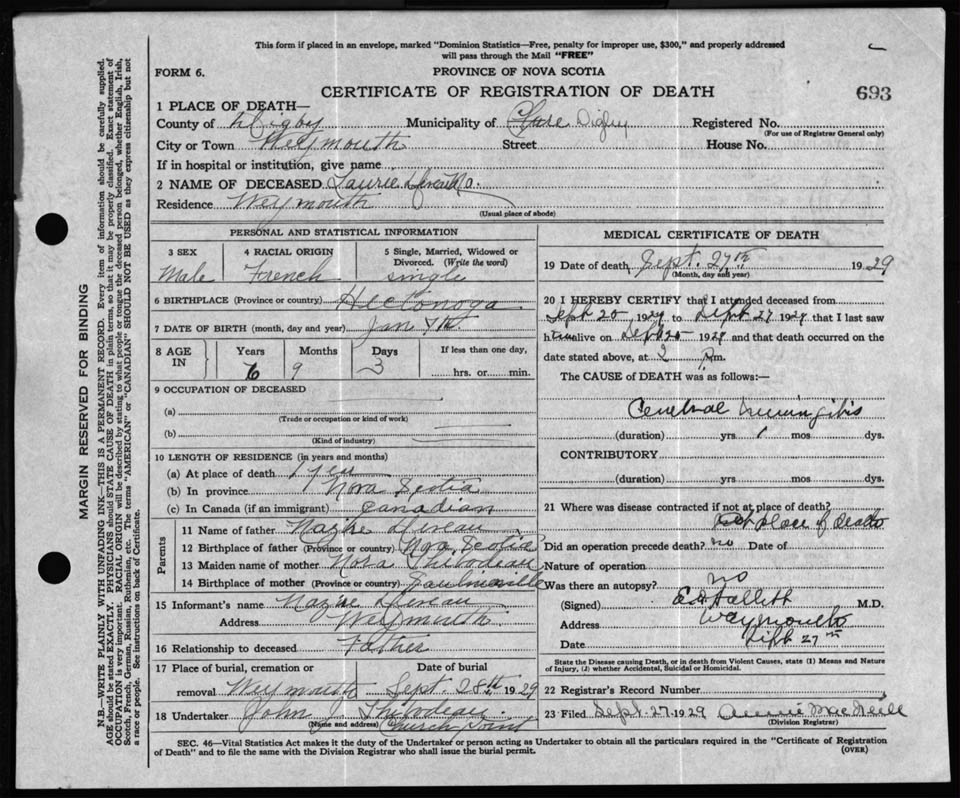 This form if placed in an envelope, marked "Dominion Statistics—Free, penalty for improper use, $300," and properly addressed
will pass through the Mail "FREE"
FORM 6.
PROVINCE OF NOVA SCOTIA
CERTIFICATE OF REGISTRATION OF DEATH
693
1 PLACE OF DEATH—
County of Digby Municipality of Clare Digby Registered No.
(For use of Registrar General only)
City or Town Weymouth Street House No.
If in hospital or institution, give name
2 NAME OF DECEASED Laurie
Residence Weymouth
(Usual place of abode)
PERSONAL AND STATISTICAL INFORMATION
3 SEX 4 RACIAL ORIGIN 5 Single, Married, Widowed or Divorced. (Write the word)
Male French Single
6 BIRTHPLACE (Province or country) Hectanooga
7 DATE OF BIRTH (month, day and year) Jan 7th
8 AGE IN Years Months Days If less than one day,
9 3 hrs. or min.
9 OCCUPATION OF DECEASED
(a)
(Trade or occupation or kind of work)
(b)
(Kind of industry)
10 LENGTH OF RESIDENCE (in years and months)
(a) At place of death 1 year
(b) In province Nova Scotia
(c) In Canada (if an immigrant) Canadian
Parents
11 Name of father Nazire
12 Birthplace of father (Province or country) Nova Scotia
13 Maiden name of mother Nora Thibodeau
14 Birthplace of mother (Province or country)
15 Informant's name Nazire
Address Weymouth
16 Relationship to deceased Father
17 Place of burial, cremation or Date of burial
removal Weymouth Sept. 28th 1929
18 Undertaker John J Thibodeau
(Name and address) Church Point
MEDICAL CERTIFICATE OF DEATH
19 Date of death Sept. 27th 1929
(Month, day and year)
20 I HEREBY CERTIFY that I attended deceased from
Sept 20 1929 to Sept 27 1929 that I last saw
h im alive on Sept 25 1929 and that death occurred on the
date stated above, at 2 P.m.
The CAUSE of DEATH was as follows:—
Cerebral Meningitis
(duration) yrs 1 mos dys.
CONTRIBUTORY
(duration) yrs. mos. dys.
21 Where was disease contracted if not at place of death?
at place of death
Did an operation precede death? no Date of
Nature of operation
Was there an autopsy? no
(Signed) Hallett M.D.
Address Weymouth
Date Sept 27th
State the Disease causing Death, or in death from Violent Causes, state (1) Means and Nature
of Injury, (2) whether Accidental, Suicidal or Homicidal.
22 Registrar's Record Number
23 Filed Sept. 27 1929 Annie MacNeill
(Division Registrar)
SEC. 46—Vital Statistics Act makes it the duty of the Undertaker or person acting as Undertaker to obtain all the particulars required in the "Certificate of Registration
of Death" and to file the same with the Division Registrar who shall issue the burial permit.
(OVER)
MARGIN RESERVED FOR BINDING
N.B.—WRITE PLAINLY WITH UNFADING INK—THIS IS A PERMANENT RECORD. Every item of information should be carefully supplied.
AGE should be stated EXACTLY. PHYSICIANS should STATE CAUSE OF DEATH in plain terms, so that it may be properly classified. Exact statement of
OCCUPATION is very important. RACIAL ORIGIN will be described by stating to what people or tongue the deceased person belonged, whether English, Irish,
Scotch, French, German, Russian, Ruthenian, etc. The terms "AMERICAN" or "CANADIAN" SHOULD NOT BE USED as they express citizenship but not
a race or people. See instructions on back of Certificate.